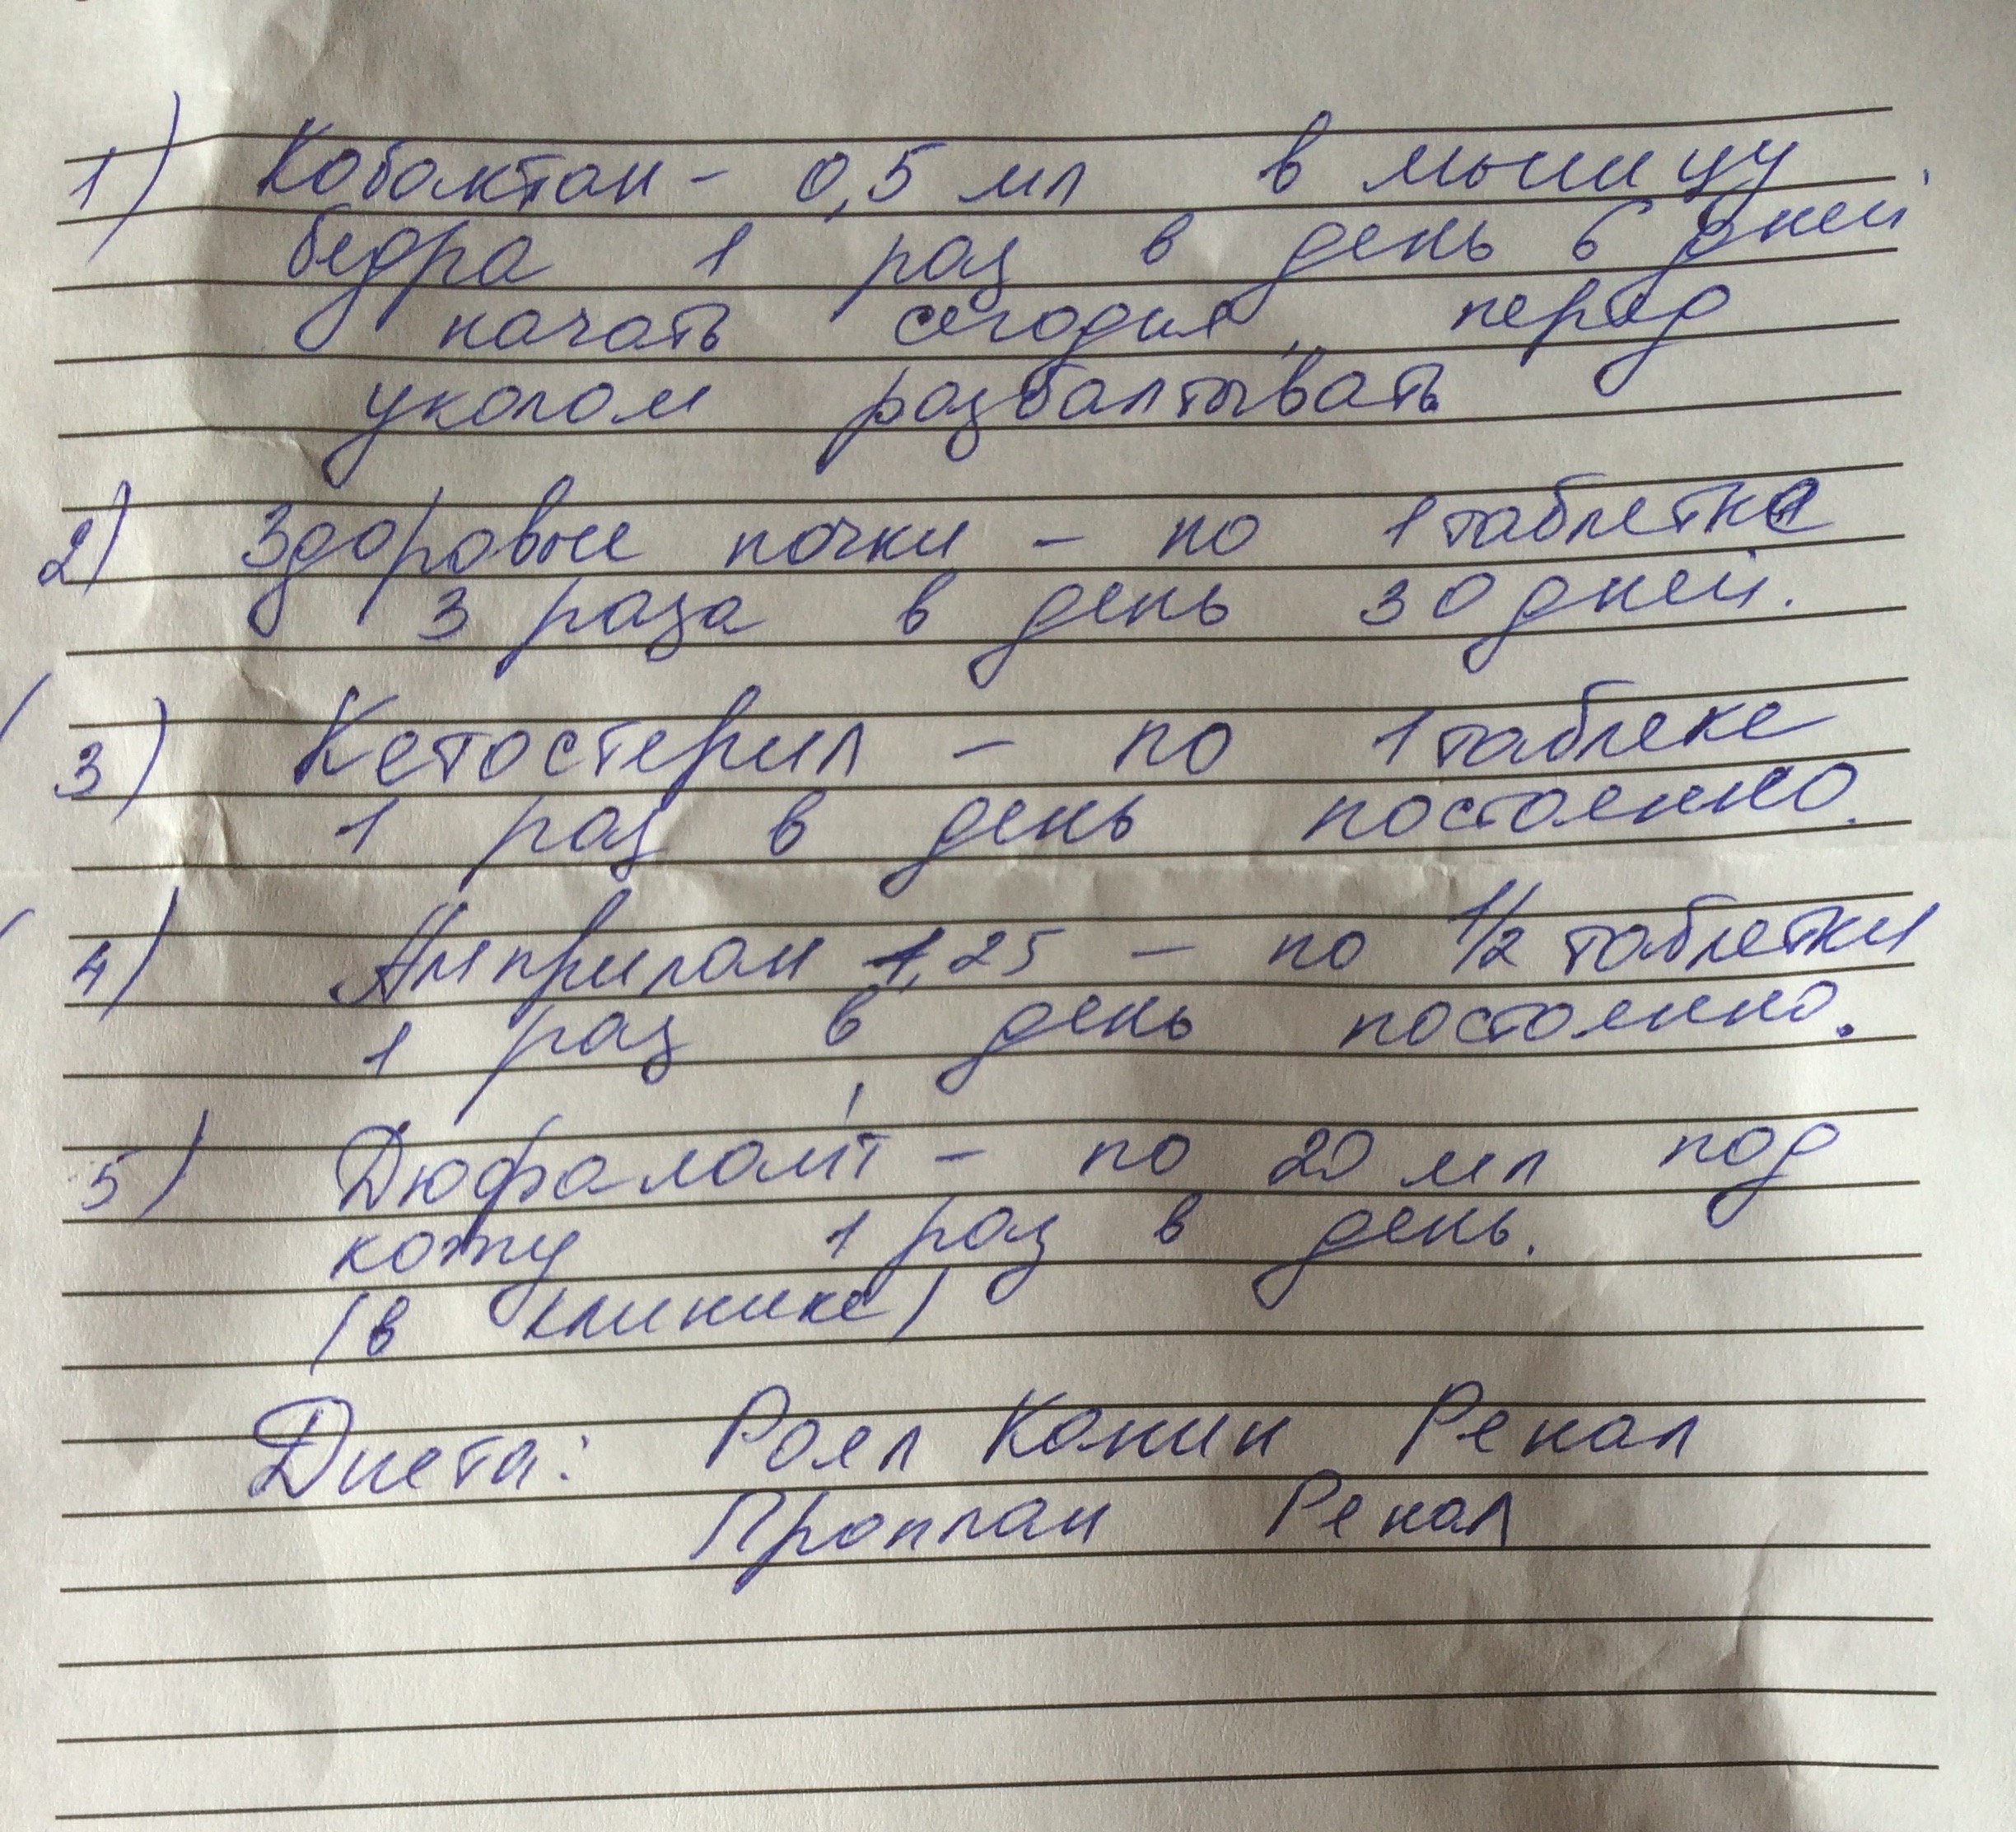 1) Кобактан - 0,5 мл в мышцу
бедра 1 раз в день 6 дней.
начать сегодня, перед
уколом разбалтывать
2) Здоровые почки - по 1 таблетке
3 раза в день 30 дней.
3) Кетостерил - по 1 таблеке
1 раз в день постоянно.
4) Амприлан 1,25 - по 1/2 таблетки
1 раз в день постоянно.
5) Дюфалайт - по 20 мл под
кожу 1 раз в день.
(в клинике)
Диета: Роял Канин Ренал
Проплан Ренал